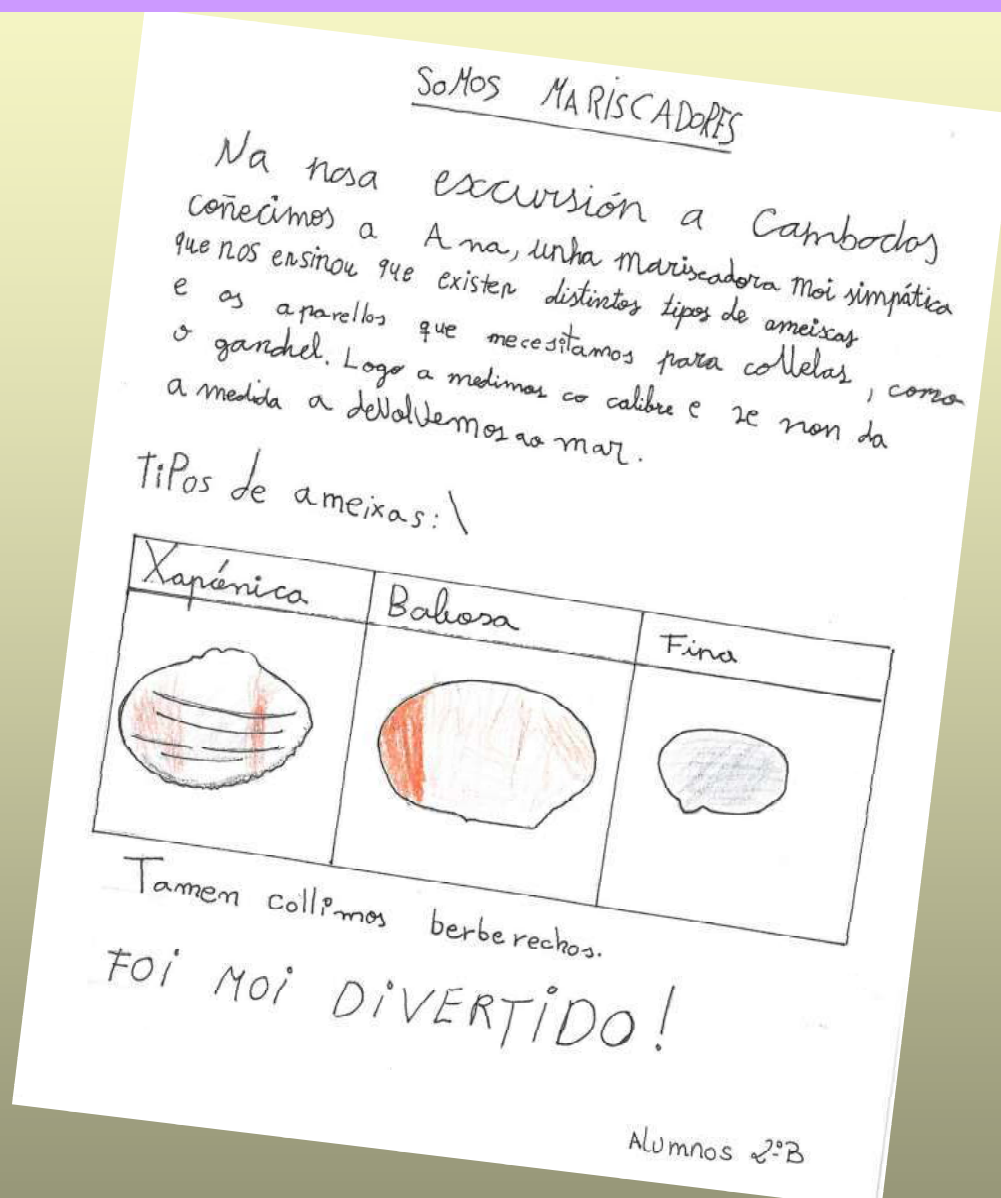 SOMOS MARISCADORES
Na nosa excursión a Cambados
coñecimos a Ana, unha mariscadora moi simpática
que nos ensinou que existen distintos tipos de ameixas
e os aparellos que necesitamos para collelas, como
o ganchel. Logo a medimos co calibre e se non da
a medida a devolvemos ao mar.
TiPos de ameixas:\
Xapónica Babosa Fina
Tamen collimos berberechos.
FOi MOi DiVERTiDO!
Alumnos 2ºB